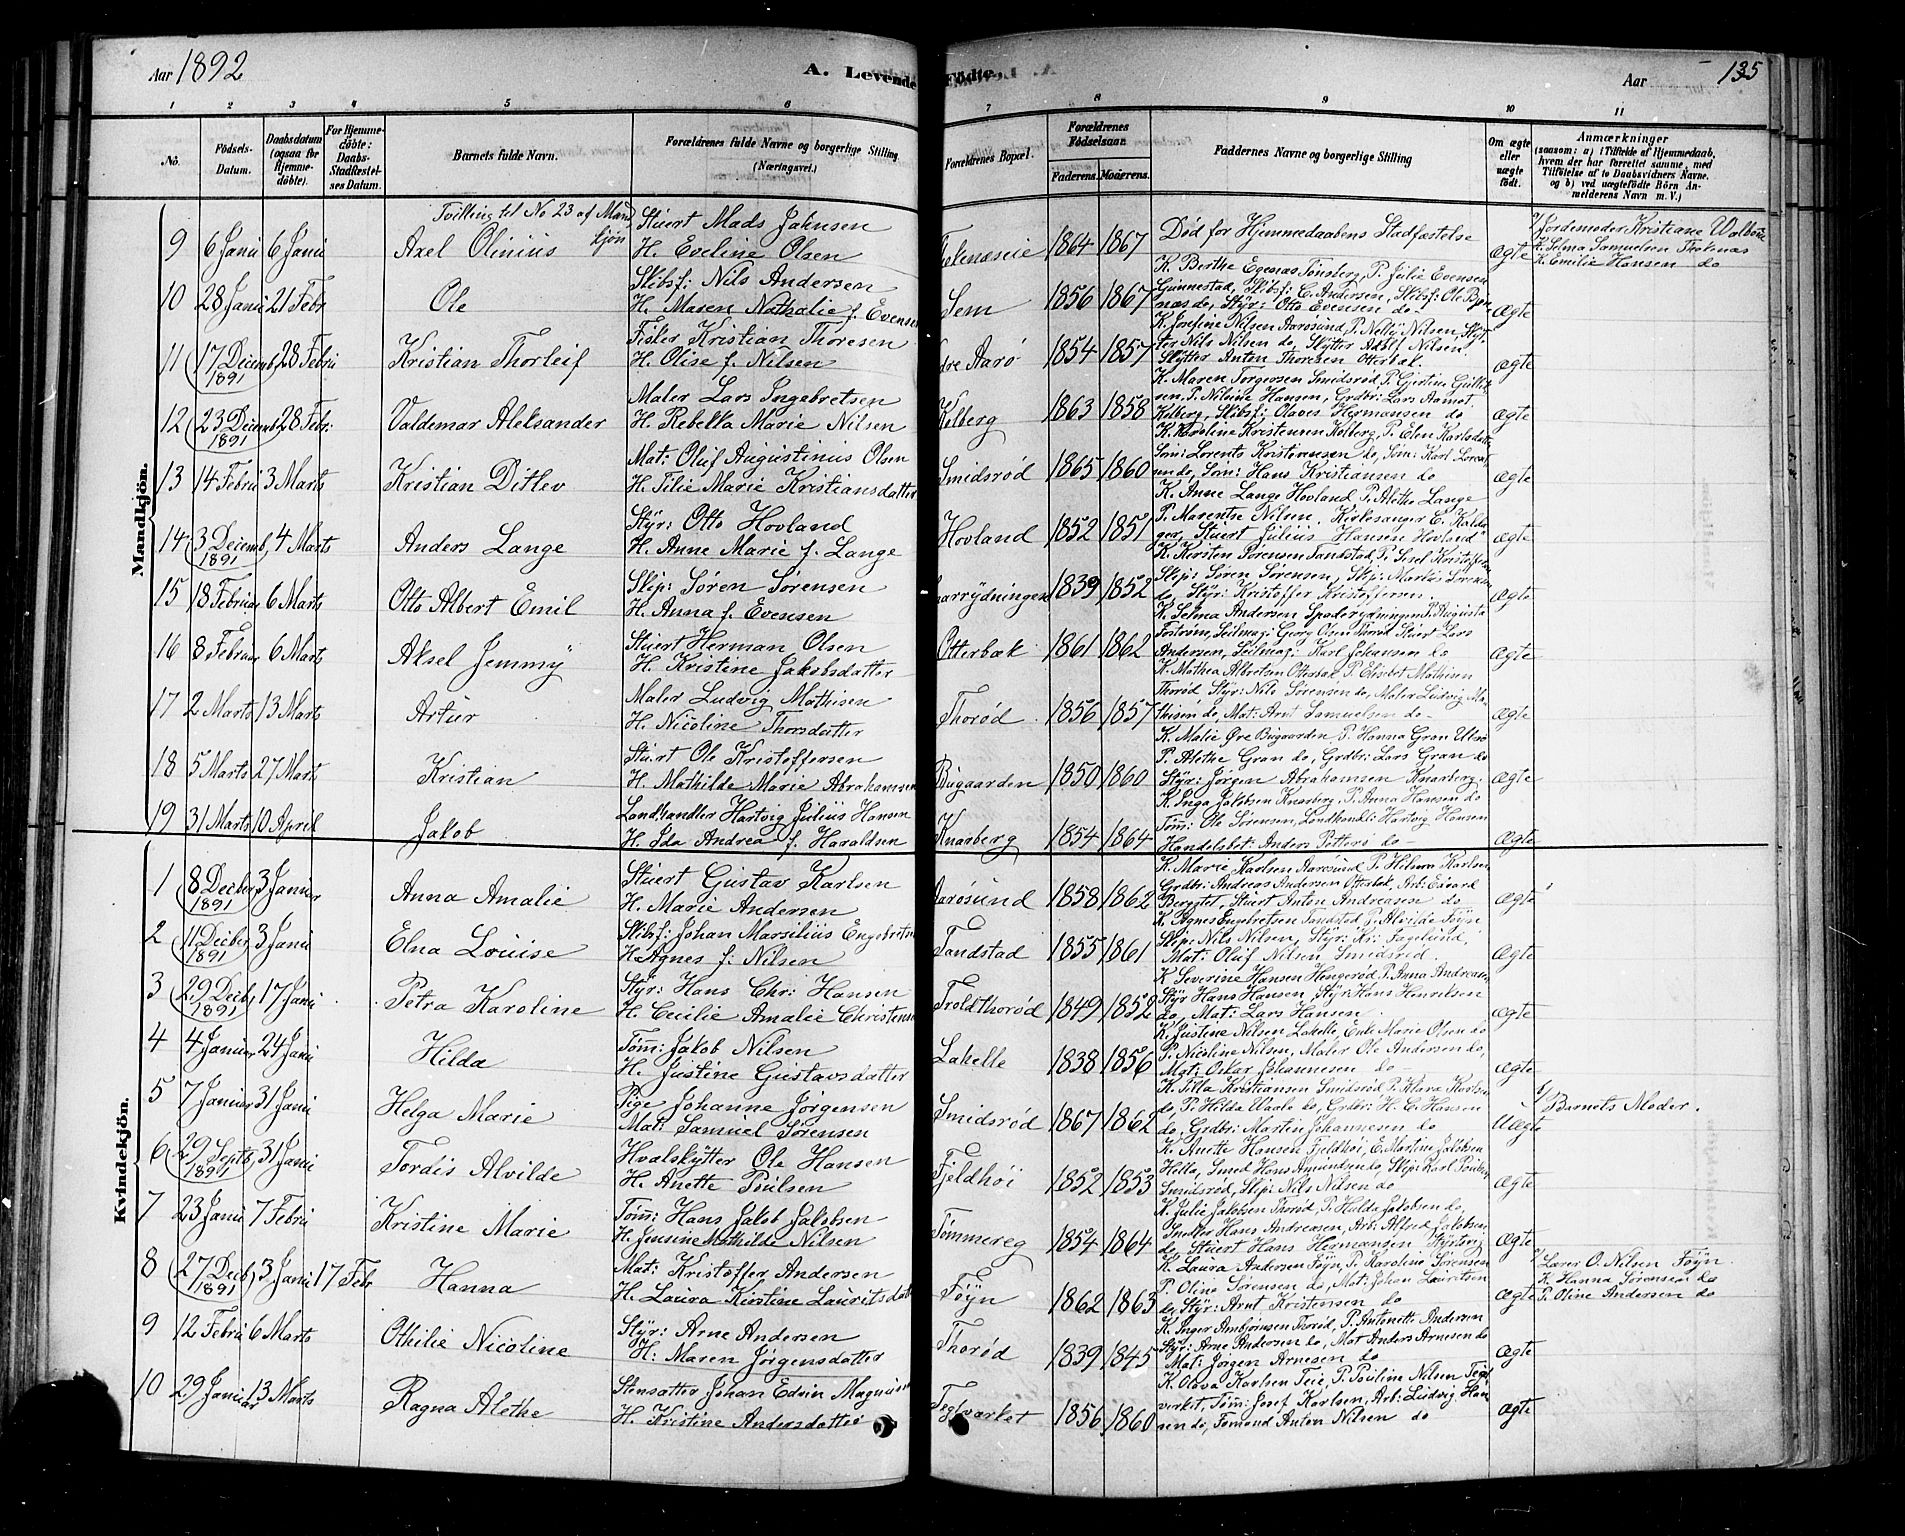 Aar 1892
A. Levende Födte.
Aar 135
1 2 3 4 5 6 7 8 9 10 11
No. Födsels-Datum. Daabsdatum (ogsaa for Hjemmedöbte). For Hjemmedöbte: Daabs-Stadfæstelses Datum. Barnets fulde Navn. Forældrenes fulde Navne og borgerlige Stilling (Næringsvei.) Forældrenes Bopæl. Forældrenes Födselsaar. Faderens. Moderens. Faddernes Navne og borgerlige Stilling Om ægte eller uægte födt. Anmærkninger (saasom: a) i Tilfælde af Hjemmedaab, hvem der har forrettet samme, med Tilföielse af to Daabsvidners Navne. og b) ved uægtefödte Börn Anmelderens Navn m. V.)
Mandkjön.
Tvilling til No 23 af Mandkjøn
9 6 Janu 6 Janu Axel Olinius Stuert Mads Jahnsen
H. Eveline Olsen 1864 1867 Død før Hjemmedaabens Stadfæstelse Ægte
Jordemoder Kristiane
K. Selma Samuelsen
K. Emilie Hansen do
10 28 Janu 21 Febr Ole Skibsf: Nils Andersen
H. Maren Nathalie f. Evensen Sem 1856 1867 K. Berthe Egenæs Tønsberg, P. Julie Evensen
Gunnestad, Skibsf: C. Andersen, Skibsf: Ole
do, Styr: Otto Evensen do Ægte
11 17 Decemb 1891 28 Febru Kristian Thorleif Fisker Kristian Thoresen
H. Olise f. Nilsen dre Aarø 1854 1857 K. Josefine Nilsen Aarøsund, P. Nelly Nilsen,
Nils Nilsen do, Skytter Adolf Nilsen.
Skytter Anton Thoresen Otterbæk. Ægte
12 23 Decemb 1891 28 Febr: Valdemar Aleksander Maler Lars Ingebretsen
H. Rebekka Marie Nilsen Kolberg 1863 1858 K. Maren Torgersen Smidsrød, P. Gjertine
P. Nilsine Hansen, Grdbr: Lars Aamot
Kolberg, Skibsf: Olaves Hermansen do Ægte
13 14 Febru 3 Marts Kristian Ditlev Mat: Oluf Augustinus Olsen
H. Tilie Marie Kristiansdatter Smidsrød 1865 1860 K. Karoline Kristensen Kolberg, P. Elen Karlsdatter
Søm: Lorents Kristiansen do, Søm: Karl
do, Søm: Hans Kristiansen do Ægte
14 3 Decemb, 1891 4 Marts Anders Lange Styr: Otto Hovland
H. Anne Marie f. Lange Hovland 1852 1851 K. Anne Lange Hovland P. Alethe Lange
P. Marentse Nilsen. Kirkesanger C.
Stuert Julius Hansen Hovland Ægte
15 18 Februar 6 Marts Otto Albert Emil Skip: Søren Sørensen
H. Anna f. Evensen 1839 1852 K. Kirsten Sørensen Sandstad, P. Sisel Kristoffersen
Skip: Søren Sørensen, Skip: Martin Sørensen
do, Styr: Kristoffer Kristoffersen. Ægte
16 8 Februar 6 Marts Aksel Jemmy Stuert Herman Olsen
H. Kristine Jakobsdatter Otterbæk 1861 1862 K. Selma Andersen P. Augusta
Seilmag: Georg Olsen Thorød Stuert Lars
Andersen, Seilmag: Karl Johansen do Ægte
17 2 Marts 13 Marts Artur Maler Ludvig Mathisen
H. Nicoline Thorsdatter Thorød 1856 1857 K. Mathea Albretsen Otterbæk, P. Elisbet Mathisen
Thorød Styr: Nils Sørensen do, Maler Ludvig Ma-
thisen do, Mat: Arnt Samuelsen do Ægte
18 5 Marts 27 Mart Kristian Stuert Ole Kristoffersen
H. Mathilde Marie Abrahamsen Bugaarden 1850 1860 K. Malie Øre Bugaarden P. Hanna Gran
P. Alethe Gran do, Grdbr: Lars Gran do
Styr: Jørgen Abrahamsen Knarberg. Ægte
19 31 Marts 10 April Jakob Landhandler Hartvig Julius Hansen
H. Ida Andrea f. Haraldsen Knarberg 1854 1864 K. Inga Jakobsen Knarberg, P. Anna Hansen do
Tøm: Ole Sørensen, Landhandl: Hartvig Hansen
Handelsbet: Anders Petters do Ægte
Kvindekjön.
1 8 Decber 1891 3 Januar Anna Amalie Stuert Gustav Karlsen
H. Marie Andersen Aarøsund 1858 1862 K. Marie Karlsen Aarøsund P. Hilma Karlsen
Grdbr: Andreas Andersen Otterbæk, Arb: Edvard
Stuert Anton Andreasen do Ægte
2 11 Decber 1891 3 Janu Elna Louise Skibsf: Johan Marsilius Engebretsen
H. Agnes f. Nilsen Sandstad 1855 1861 K. Agnes Engebretsen Sandstad P. Alvilde Føyn
Skip: Nils Nilsen, Styr: Kr: Fagelund,
Mat: Oluf Nilsen Smidsrød. Ægte
3 29 Decb, 1891 17 Janu Petra Karoline Styr: Hans Chr: Hansen
H. Cecilie Amalie Christensen Troldthorød 1849 1852 K. Severine Hansen Hengerød P. Anna Andreasen
Styr Hans Hansen, Styr: Hans Henriksen
do, Mat: Lars Hansen Ægte
4 4 Januar 24 Janu Hilda Tøm: Jakob Nilsen
H. Justine Gustavsdatter Lakelle 1838 1856 K. Justine Nilsen Lakelle, Enke Marie Olsen do
P. Nicoline Nilsen, Maler Ole Andersen do,
Mat: Oskar Johannesen do Ægte
5 7 Januar 31 Janu Helga Marie Pige Johanne Jørgensen
Mat: Samuel Sørensen Smidsrød 1867 1862 K. Tilla Kristiansen Smidsrød P. Klara Karlsen
do, P. Hilda Waale do, Grdbr: H. C. Hansen
do, Grdbr: Martin Johannesen do Uægte Barnets Moder.
6 29 Septb, 1891 31 Janu Tordis Alvilde Hvalskytter Ole Hansen
H. Anette Poulsen Fjeldhøi 1852 1853 K. Anette Hansen Fjeldhøi, E. Martine Jakobsen
Hella, Smed Hans Amundsen do, Skip: Karl Poulsen
Smidsrød, Skip: Nils Nilsen do Ægte
7 23 Janu 7 Febru Kristine Marie Tøm: Hans Jakob Jakobsen
H. Jensine Mathilde Nilsen Tømmereg 1854 1864 K. Julie Jakobsen Thorød, P. Hulda Jakobsen do,
Snedker Hans Andreasen, Arb: Alfred Jakobsen
do, Stuert Hans Hermansen Ægte
8 27 Decb, 1891 3 Janu 17 Febr Hanna Mat: Kristoffer Andersen
H. Laura Kirstine Lauritsdatter Føyn 1862 1863 K. Laura Andersen Føyn, P. Karoline Sørensen
P. Oline Sørensen do, Mat: Johan Lauritsen
do, Styr: Arnt Kristensen do Ægte
Lærer O. Nilsen Føyn.
K. Hanna Sørensen do
P. Oline Andersen do
9 12 Febru 6 Marts Othilie Nicoline Styr: Arne Andersen
H: Maren Jørgensdatter Thorød 1839 1845 K. Inger Arnbjørnsen Thorød, P. Antonette Andersen
Styr: Arne Andersen do, Mat Anders Arnesen do
Mat: Jørgen Arnesen do Ægte
10 29 Januar 13 Marts Ragna Alethe Stensætter Johan Edvin Magnussen
H. Kristine Andersdatter Teglværket 1856 1860 K. Olava Karlsen Teie, P. Pouline Nilsen Tegl
verket, Tøm: Josef Karlsen, Arb: Ludvig Han
sen do, Tømand Anton Nilsen do Ægte